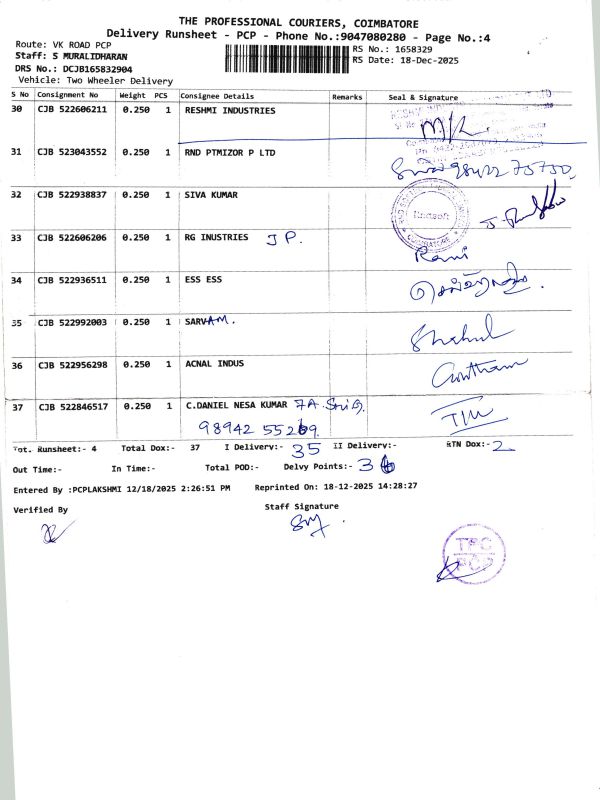 THE PROFESSIONAL COURIERS, COIMBATORE
Delivery Runsheet - PCP - Phone No.:9047080280 - Page No.:4
Route: VK ROAD PCP
RS No.: 1658329
Staff: S MURALIDHARAN
RS Date: 18-Dec-2025
DRS No.: DCJB165832904
Vehicle: Two Wheeler Delivery
S No Consignment No Weight PCS Consignee Details Remarks Seal & Signature
30 CJB 522606211 0.250 1 RESHMI INDUSTRIES
31 CJB 523043552 0.250 1 RND PTMIZOR P LTD
32 CJB 522938837 0.250 1 SIVA KUMAR
33 CJB 522606206 0.250 1 RG INUSTRIES J P. Rami
34 CJB 522936511 0.250 1 ESS ESS
35 CJB 522992003 0.250 1 SARVAM.
36 CJB 522956298 0.250 1 ACNAL INDUS
37 CJB 522846517 0.250 1 C.DANIEL NESA KUMAR 7A
98942 55269.
Tot. Runsheet:- 4 Total Dox:- 37 I Delivery:- 35 II Delivery:- RTN Dox:- 2
Out Time:- In Time:- Total POD:- Delvy Points:- 36
Entered By :PCPLAKSHMI 12/18/2025 2:26:51 PM Reprinted On: 18-12-2025 14:28:27
Verified By Staff Signature
TPC
PCP